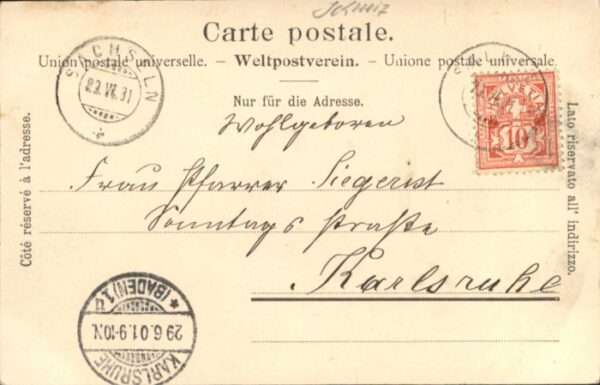 Schweiz
Carte postale.
Union postale universelle. – Weltpostverein. – Unione postale universale.
Nur für die Adresse.
Côté réservé à l'adresse.
Lato riservato all' indirizzo.
SACHSELN
HELVETIA
10
Wohlgeboren
Frau Pfarrer Siegerist
Sonntags straße
Karlsruhe
KARLSRUHE
29.6.01.9-10N.
* (BADEN) 1